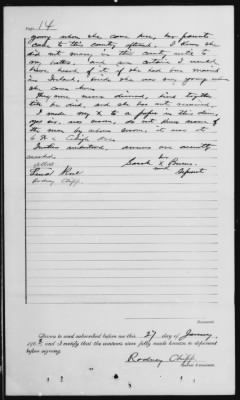 Page 14
young when she came here, her parents
came to this country afterwards. I know she
did not marry in this country prior to
my sister, and am certain I would
have heard of it if she had been married
in Ireland, besides she was very young when
she came here.
They were never divorced, lived together
till he died, and she has not remarried.
I made my X to a paper in this claim,
was sworn, do not know name of
the man by whom sworn, it was at
6 N.
Justice understood, answers are correctly
recorded.
her
Attest Sarah X Burns
mark Deponent
Rodney Cliff
Deponent.
Sworn to and subscribed before me this 27 day of January,
190 , and I certify that the contents were fully made known to deponent
before signing.
Rodney Cliff
Special Examiner.